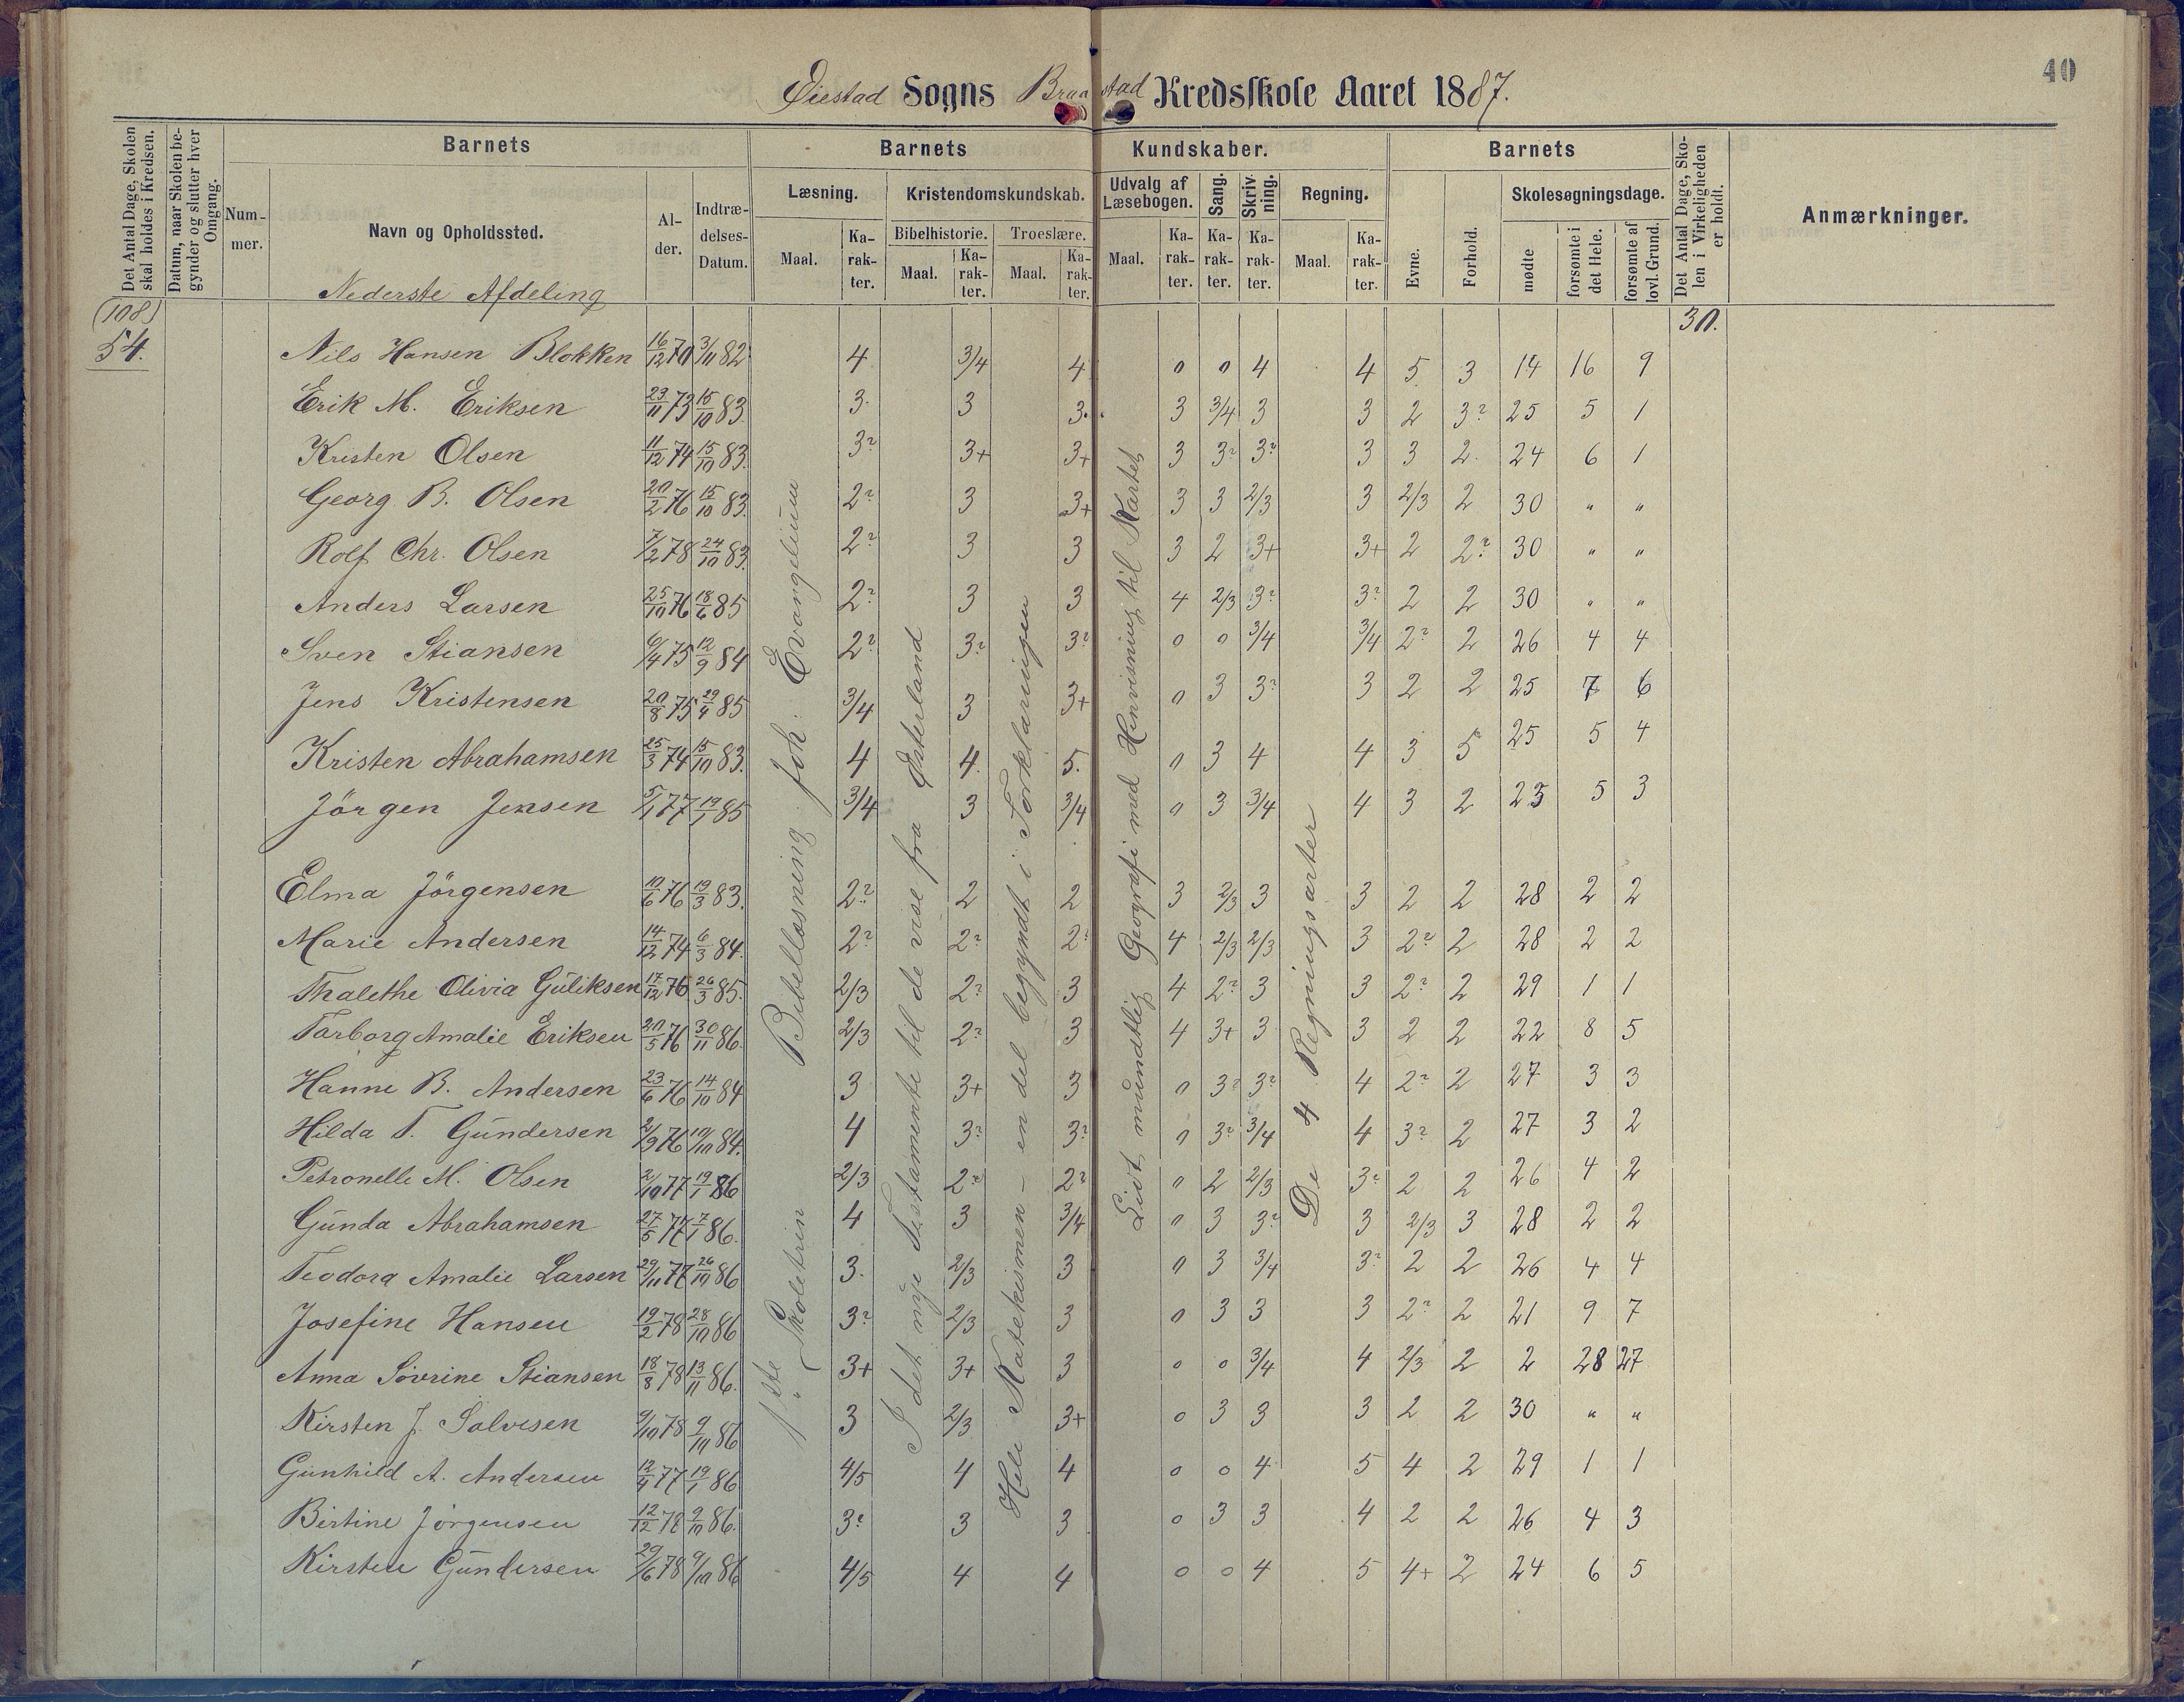 40
Øiestad Sogns Braastad Kredsskole Aaret 1887.
Det Antal Dage, Skolen skal holdes i Kredsen.
Datum, naar Skolen begynder og slutter hver Omgang.
Barnets
Nummer.
Navn og Opholdssted.
Alder.
Indtrædelses-Datum.
Barnets Kundskaber.
Læsning.
Maal.
Karakter.
Kristendomskundskab.
Bibelhistorie.
Maal.
Karakter.
Troeslære.
Maal.
Karakter.
Udvalg af Læsebogen.
Maal.
Karakter.
Sang.
Karakter.
Skrivning.
Karakter.
Regning.
Maal.
Karakter.
Barnets
Evne.
Forhold.
Skolesøgningsdage.
mødte
forsømte i det Hele.
forsømte af lovl. Grund.
Det Antal Dage, Skolen i Virkeligheden er holdt.
Anmærkninger.
Nederste Afdeling
(108)
54.
30.
Nils Hansen Blokken 16/12 70 3/11 82 4 3/4 4 0 0 4 4 5 3 14 16 9
Erik M. Eriksen 23/11 73 15/10 83. 3. 3 3. 3 3/4 3 3 2 3? 25 5 1
Kristen Olsen 11/12 74 15/10 83. 3? 3+ 3+ 3 3? 3? 3 3 2. 24 6 1
Georg B. Olsen 20/2 76 15/10 83. 2? 3 3+ 3 3 2/3 3 2/3 2 30 " "
Rolf Chr. Olsen 7/2 78 24/10 83. 2? 3 3 3 2 3+ 3+ 2 2? 30 " "
Anders Larsen 25/10 76 18/6 85 2? 3 3 4 2/3 3? 3? 2 2 30 " "
Sven Stiansen 6/4 75 12/9 84 2? 3? 3? 0 0 3/4 3/4 2? 2 26 4 4
Jens Kristensen 20/8 75 29/4 85 3/4 3 3+ 0 3 3? 3 2 2 25 7 6
Kristen Abrahamsen 25/3 74 15/10 83. 4 4. 5. 0 3 4 4 3 5 25 5 4
Jörgen Jensen 5/1 77 19/1 85 3/4 3 3/4 0 3 3/4 4 3 2 25 5 3
Elma Jörgensen 10/6 76 19/3 83. 2? 2 2 3 2/3 3 3 2 2 28 2 2
Marie Andersen 14/12 74 6/3 84. 2? 2? 2? 4 2/3 2/3 3 2? 2 28 2 2
Thalethe Olivia Guliksen 17/12 76 26/3 85. 2/3 2? 3 4 2? 3 3 2? 2 29 1 1
Tarborg Amalie Eriksen 20/5 76 30/11 86. 2/3 2? 3 4 3+ 3 3 2 2 22 8 5
Hanne B. Andersen 23/6 76 14/10 84 3 3+ 3 0 3? 3? 4 2? 2 27 3 3
Hilda T. Gundersen 2/9 76 10/10 84. 4 3? 3? 0 3? 3/4 4 3? 2 27 3 2
Petronelle M. Olsen 2/10 77 19/1 86 2/3 2? 2? 0 2 2/3 3? 2 2 26 4 2
Gunda Abrahamsen 27/5 77 7/1 86. 4 3 3/4 0 3 3? 3 2/3 3 28 2 2
Teodora Amalie Larsen 29/11 77 26/10 86 3. 2/3 3 0 3 3/4 3? 2 2 26 4 4
Josefine Hansen 19/2 78 28/10 86 3? 2/3 3 0 3 3 3 2? 2 21 9 7
Anna Sövrine Stiansen 18/8 78 13/11 86. 3+ 3+ 3 0 0 3/4 4 2/3 2 2 28 27
Kirsten J. Salvesen 9/10 78 9/10 86 3 2/3 3+ 0 3 3 3 2 2 30 " "
Gunhild A. Andersen 12/4 77 19/1 86 4/5 4 4 0 0 4 5 4 2 29 1 1
Birtine Jörgensen 12/12 78 9/10 86. 3? 3 3 0 3 3 4 2 2 26 4 3
Kirsten Gundersen 29/6 78 9/10 86 4/5 4 4 0 0 4 5 4+ 2 24 6 5
1ste Skoletrin Bibellæsning Joh. Evangelium
I det nye Testamente til de vise fra Østerland
Hele Katekismen - en del begyndt i Forklaringen
Lidt mundtlig Geografi med Henvisning til Kartet
De 4 Regningsarter